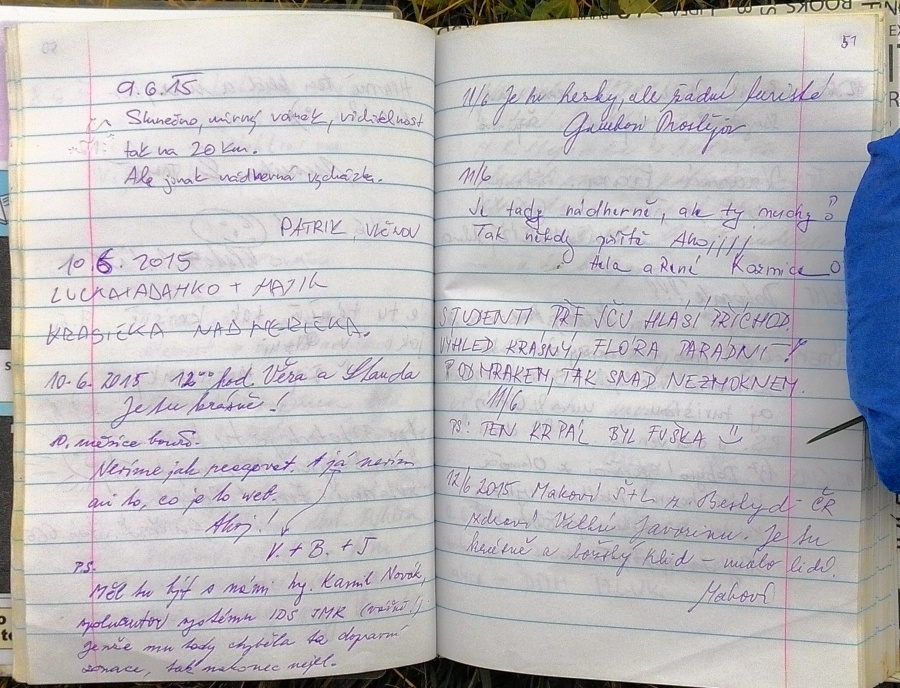 9.6.15
Slunečno, mírný vánek, viditelnost
tak na 20 km.
Ale jinak nádherná vycházka.
PATRIK, VLČNOV
10 6. 2015
LUCKA + ADAMKO + MATÍK
KRASIČKA NADHERIČKA.
10.6.2015 12⁰⁰ hod. Věra a Standa
Je tu krásně!
10. měsíce
Nevíme jak reagovat. A já nevím
ani to, co je to web.
Ahoj!
V. + B. + J
PS.
Měl tu být s námi Ing. Kamil Novák,
spoluautor systému IDS JMK (vážně!),
jenže mu tady chyběla ta dopravní
, tak nakonec nejel.
51
11/6 Je tu hezky, ale žádní turisté
Prostějov
11/6
Je tady nádherně, ale ty mouchy?
Tak někdy příště Ahoj!!!!
a René
STUDENTI PŘF JČU HLÁSÍ PŘÍCHOD.
VÝHLED KRÁSNÝ, FLÓRA PARÁDNÍ!
POD MRAKEM, TAK SNAD NEZMOKNEM.
11/6
PS: TEN KRPÁL BYL FUŠKA
12/6 2015 Makovi Š+L z Beskyd ČR
zdraví Velkou Javorinu. Je tu
krásně a božský klid – málo lidí.
Makovi